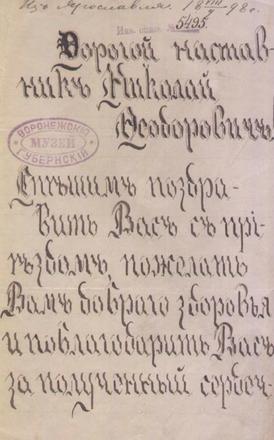 Изъ Ярославля. 18 VIII 98 г.
Инв.
5495.
Дорогой настав-
никъ Николай
Ѳеодоровичъ!
ВОРОНЕЖСКІЙ
МУЗЕЙ
ГУБЕРНСКІЙ
Спѣшимъ поздра-
вить Васъ съ прі-
ѣздомъ, пожелать
Вамъ добраго здоровья
и поблагодарить Васъ
за полученный сердеч-